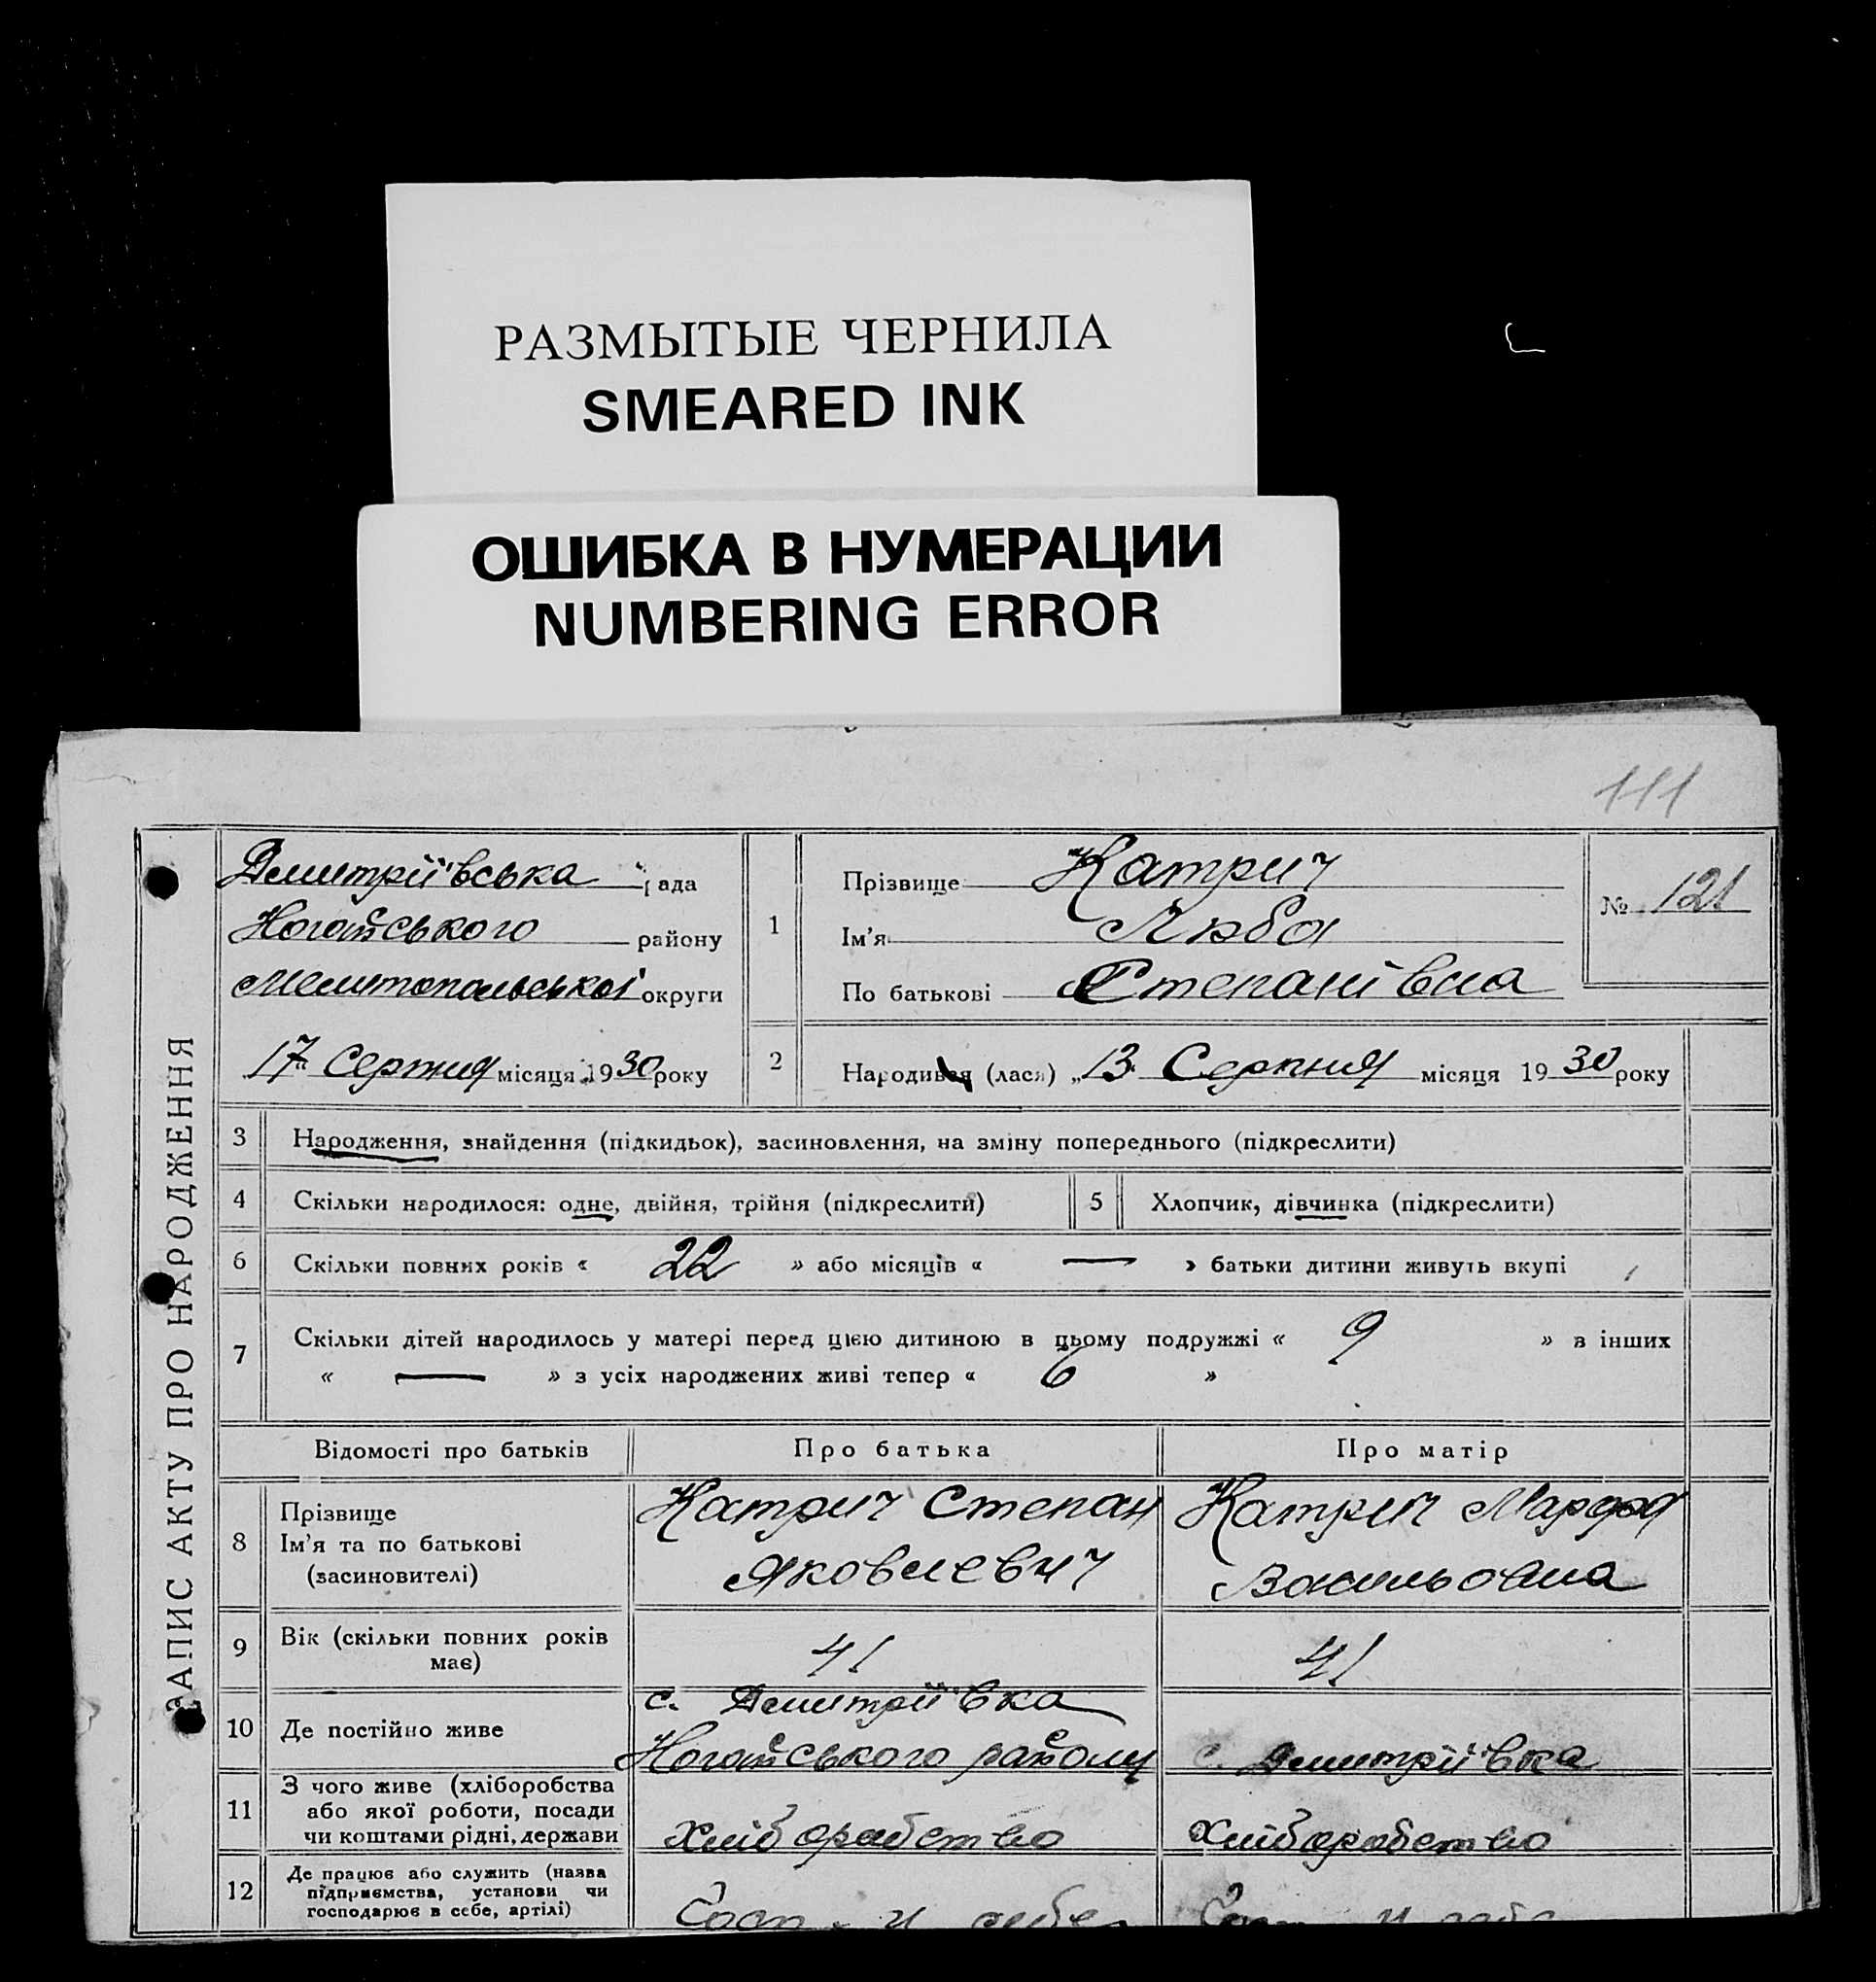 РАЗМЫТЫЕ ЧЕРНИЛА
SMEARED INK
ОШИБКА В НУМЕРАЦИИ
NUMBERING ERROR
111
ЗАПИС АКТУ ПРО НАРОДЖЕННЯ
Дмитріївська рада
Ногайського району
Мелитопольської округи
17 Серпня місяця 1930 року
1
Прізвище Катрич
Ім'я Люба
По батькові Степанівна
№ 121
2 Народився (лася) „13" Серпня місяця 1930 року
3 Народження, знайдення (підкидьок), засиновлення, на зміну попереднього (підкреслити)
4 Скільки народилося: одне, двійня, трійня (підкреслити) 5 Хлопчик, дівчинка (підкреслити)
6 Скільки повних років « 22 » або місяців « — » батьки дитини живуть вкупі
7 Скільки дітей народилось у матері перед цією дитиною в цьому подружжі « 9 » в інших
« — » з усіх народжених живі тепер « 6 »
Відомості про батьків Про батька Про матір
8 Прізвище
Ім'я та по батькові
(засиновителі)
Катрич Степан
Яковлевич
Катрич Марфа
Васильовна
9 Вік (скільки повних років
має)
41 41
10 Де постійно живе
с. Дмитріївка
Ногайського району
с. Дмитріївка
11 З чого живе (хліборобства
або якої роботи, посади
чи коштами рідні, держави
Хліборобство Хліборобство
12 Де працює або служить (назва
підприємства, установи чи
господарює в себе, артілі)